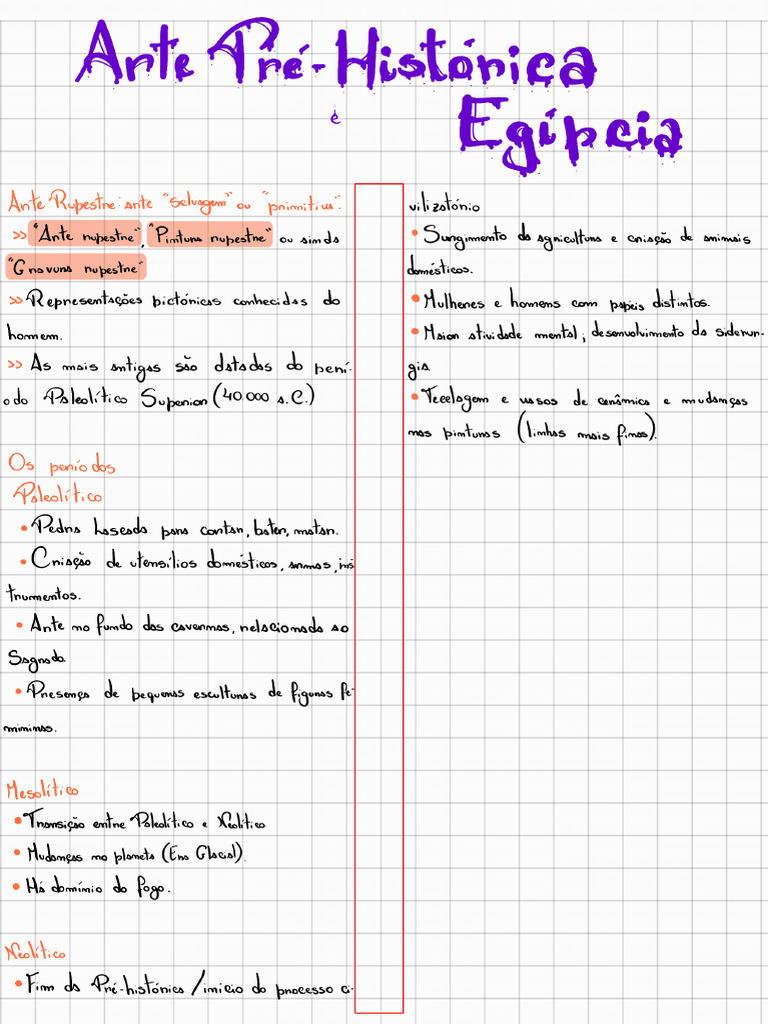 Arte Pré-Histórica
e
Egípcia
Arte Rupestre: arte "selvagem" ou "primitiva".
>> "Arte rupestre", "Pintura rupestre" ou ainda
"Gravura rupestre"
>> Representações pictóricas conhecidas do
homem.
>> As mais antigas são datadas do perí-
odo Paleolítico Superior (40 000 a.C.)
Os períodos
Paleolítico
• Pedra lascada para cortar, bater, matar.
• Criação de utensílios domésticos, armas, ins
trumentos.
• Arte no fundo das cavernas, relacionada ao
Sagrado.
• Presença de pequenas esculturas de figuras fe-
mininas.
Mesolítico
• Transição entre Paleolítico e Neolítico
• Mudanças no planeta (Era Glacial).
• Há domínio do fogo.
Neolítico
• Fim da Pré-histórica / início do processo ci-
vilizatório
• Surgimento da agricultura e criação de animais
domésticos.
• Mulheres e homens com papéis distintos.
• Maior atividade mental; desenvolvimento da siderur-
gia
• Tecelagem e vasos de cerâmica e mudanças
nas pinturas (linhas mais finas).